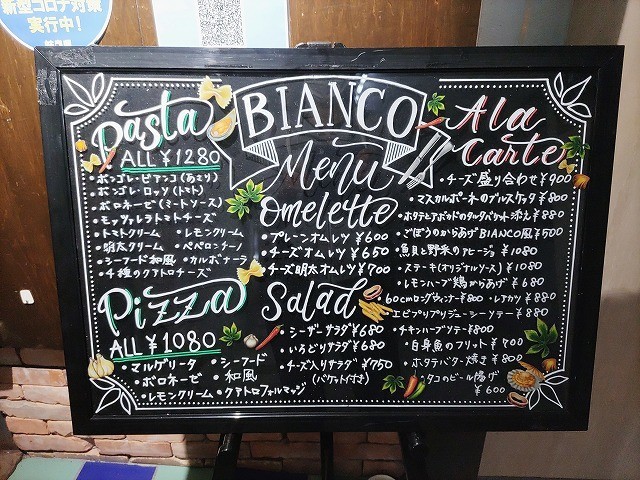 新型コロナ対策
実行中!
BIANCO
Menu
Pasta
ALL ¥1280
・ボンゴレ・ビアンコ(あさり)
・ボンゴレ・ロッソ(トマト)
・ボロネーゼ(ミートソース)
・モッツァレラトマトチーズ
・トマトクリーム ・レモンクリーム
・明太クリーム ・ペペロンチーノ
・シーフード和風 ・カルボナーラ
・4種のクアトロチーズ
Pizza
ALL ¥1080
・マルゲリータ ・シーフード
・ボロネーゼ ・和風
・レモンクリーム ・クアトロフォルマッジ
Omelette
・プレーンオムレツ ¥600
・チーズオムレツ ¥650
・チーズ明太オムレツ ¥700
Salad
・シーザーサラダ ¥680
・いろどりサラダ ¥680
・チーズ入りサラダ ¥750
(バケット付き)
A la
Carte
・チーズ盛り合わせ ¥900
・マスカルポーネのブルスケッタ ¥800
・ホタテとアボカドのタルタバケット添え ¥880
・ごぼうのからあげBIANCO風 ¥500
・魚貝と野菜のアヒージョ ¥1080
・ステーキ(オリジナルソース) ¥1080
・レモンハーブ鶏からあげ ¥680
・60cmロングウィンナー ¥800 ・レアカツ ¥880
・エビプリプリジューシーソテー ¥880
・チキンハーブソテー ¥800
・白身魚のフリット
・ホタテバター焼き ¥800
・タコのビール揚げ
¥600